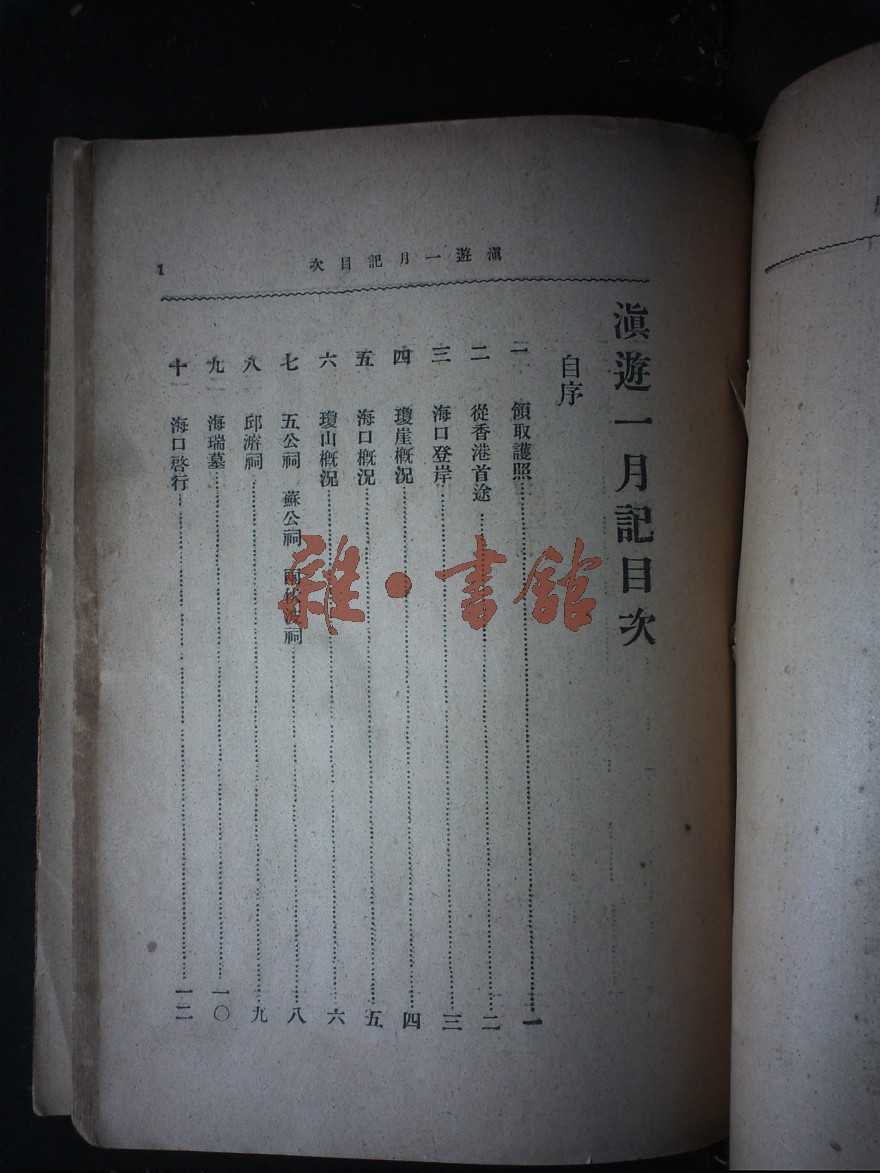 滇遊一月記目次
1
滇遊一月記目次
自序
一 領取護照……一
二 從香港首途……二
三 海口登岸……三
四 瓊崖概況……四
五 海口概況……五
六 瓊山概況……六
七 五公祠 蘇公祠 兩伏波祠……八
八 邱濬祠……九
九 海瑞墓……一〇
十 海口啓行……一二
雜·書館